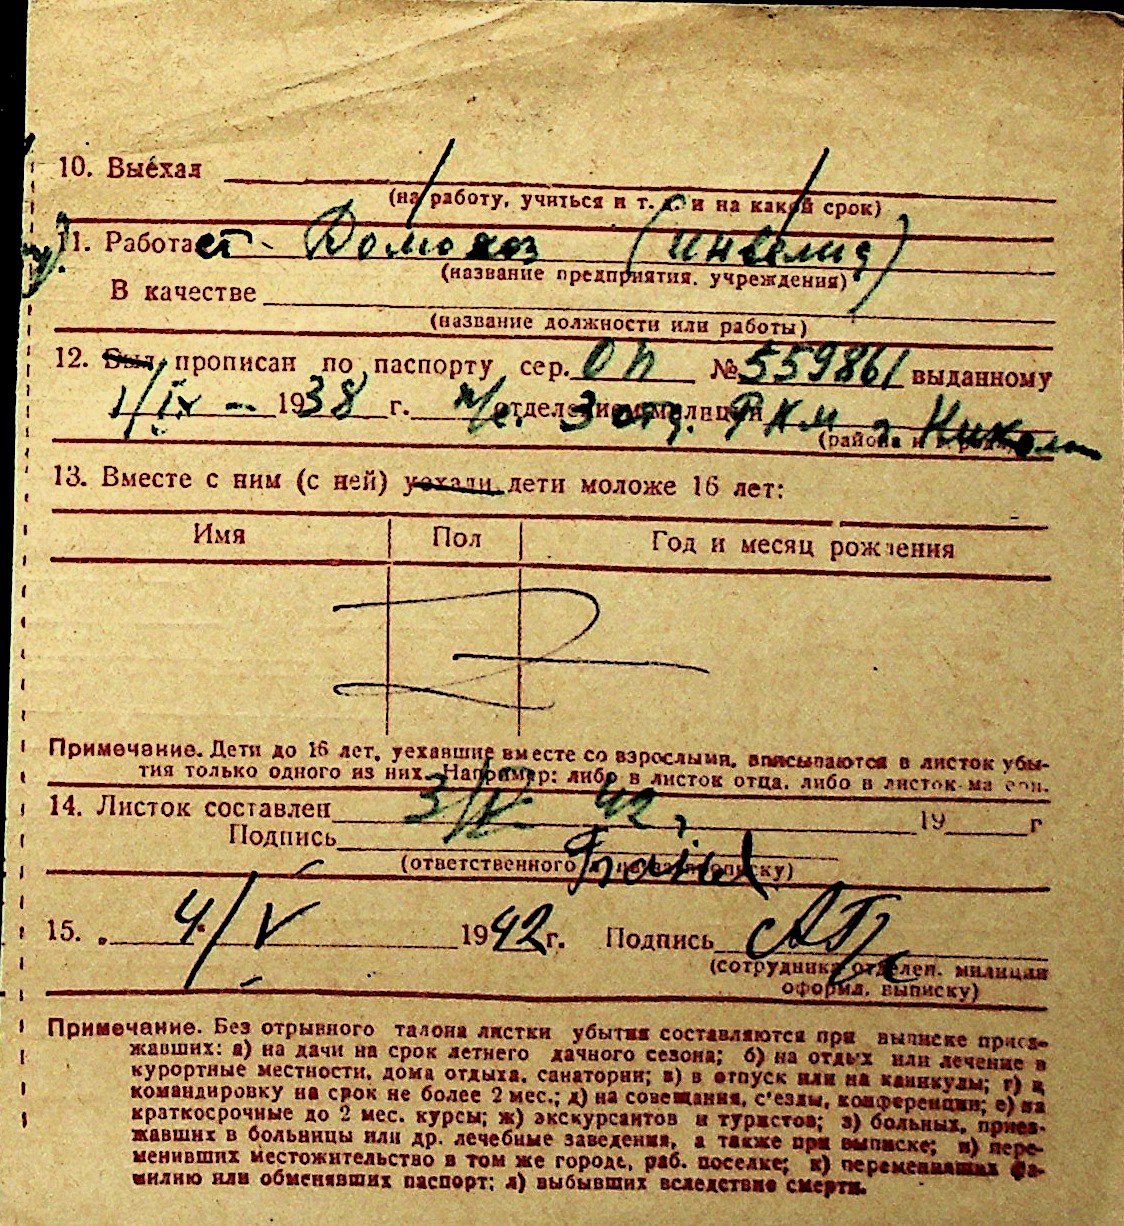 10. Выехал
(на работу, учиться и т. д. и на какой срок)
11. Работает - Домохоз (инвалид)
(название предприятия, учреждения)
В качестве
(название должности или работы)
12. Был прописан по паспорту сер. ОП № 559861 выданному
1/IX - 1938 г. отделением милиции 3 отд. РКМ г Никола
(района и города)
13. Вместе с ним (с ней) уехали дети моложе 16 лет:
Имя Пол Год и месяц рождения
Примечание. Дети до 16 лет, уехавшие вместе со взрослыми, вписываются в листок убы-
тия только одного из них. Например: либо в листок отца, либо в листок матери.
14. Листок составлен 3/V 42 г. 19 г
Подпись
(ответственного за прописку)
15. 4/V 1942 г. Подпись
(сотрудника отделен. милиции
оформл. выписку)
Примечание. Без отрывного талона листки убытия составляются при выписке приез-
жавших: а) на дачи на срок летнего дачного сезона; б) на отдых или лечение в
курортные местности, дома отдыха, санатории; в) в отпуск или на каникулы; г) в
командировку на срок не более 2 мес.; д) на совещания, с'езды, конференции; е) на
краткосрочные до 2 мес. курсы; ж) экскурсантов и туристов; з) больных, приез-
жавших в больницы или др. лечебные заведения, а также при выписке; и) пере-
менивших местожительство в том же городе, раб. поселке; к) переменивших фа-
милию или обменявших паспорт; л) выбывших вследствие смерти.